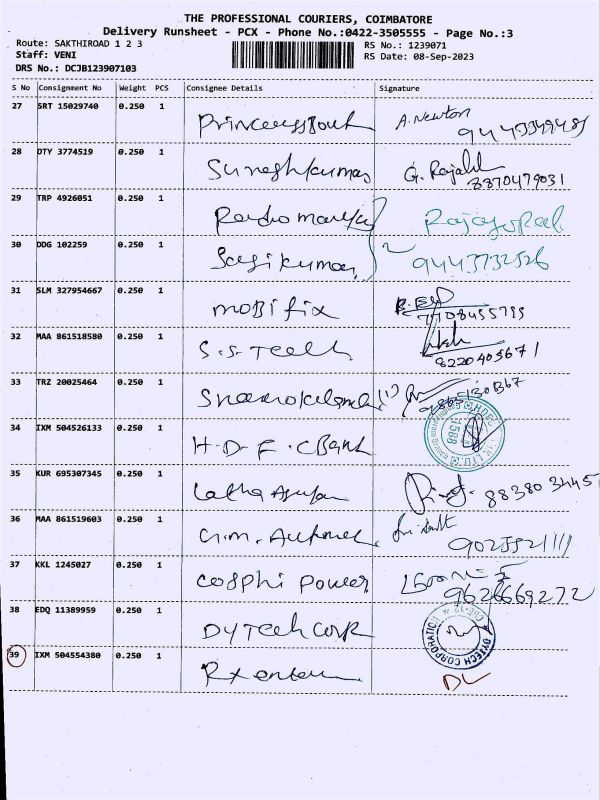 THE PROFESSIONAL COURIERS, COIMBATORE
Delivery Runsheet - PCX - Phone No.:0422-3505555 - Page No.:3
Route: SAKTHIROAD 1 2 3
RS No.: 1239071
Staff: VENI
RS Date: 08-Sep-2023
DRS No.: DCJB123907103
S No Consignment No Weight PCS Consignee Details Signature
27 SRT 15029740 0.250 1 A. Newton
28 DTY 3774519 0.250 1 Sureshkumar
8870479031
29 TRP 4926051 0.250 1
30 DDG 102259 0.250 1 Sasikumar
9443732526
31 SLM 327954667 0.250 1 mobifix
7708455795
32 MAA 861518580 0.250 1 S.S. Tech
8220405671
33 TRZ 20025464 0.250 1
34 IXM 504526133 0.250 1 H.D.F.C Bank
1588
35 KUR 695307345 0.250 1 Latha
36 MAA 861519603 0.250 1 G.M.
37 KKL 1245027 0.250 1 cosphi power
9626669272
38 EDQ 11389959 0.250 1 Dytech corp
DYTECH CORPORATION
39 IXM 504554380 0.250 1 Rx
DL